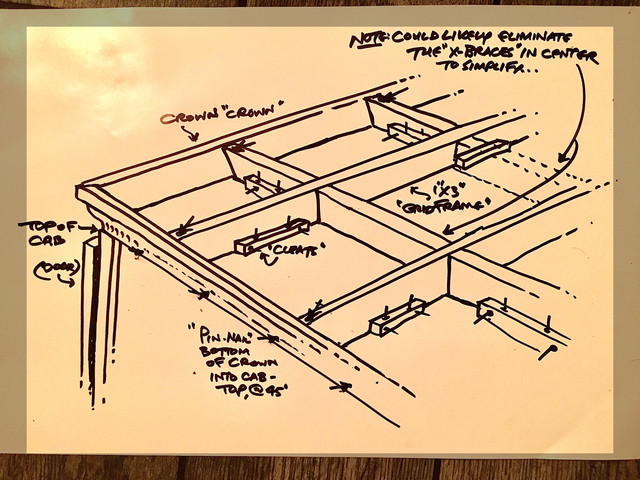 NOTE: COULD LIKELY ELIMINATE
THE "X-BRACES" IN CENTER
TO SIMPLIFY...
CROWN "CROWN"
1"X3"
"GRIDFRAME"
TOP OF
CAB
(DOOR)
"CLEATS"
"PIN-NAIL"
BOTTOM
OF CROWN
INTO CAB-
TOP, @ 45°